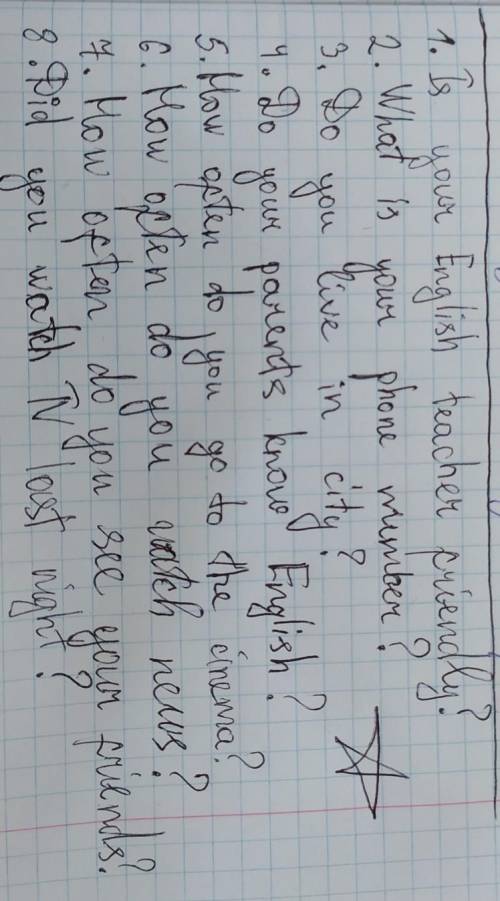 1. Is your English teacher friendly?
2. What is your phone number?
3. Do you live in city?
4. Do your parents know English?
5. How often do you go to the cinema?
6. How often do you watch news?
7. How often do you see your friends?
8. Did you watch TV last night?